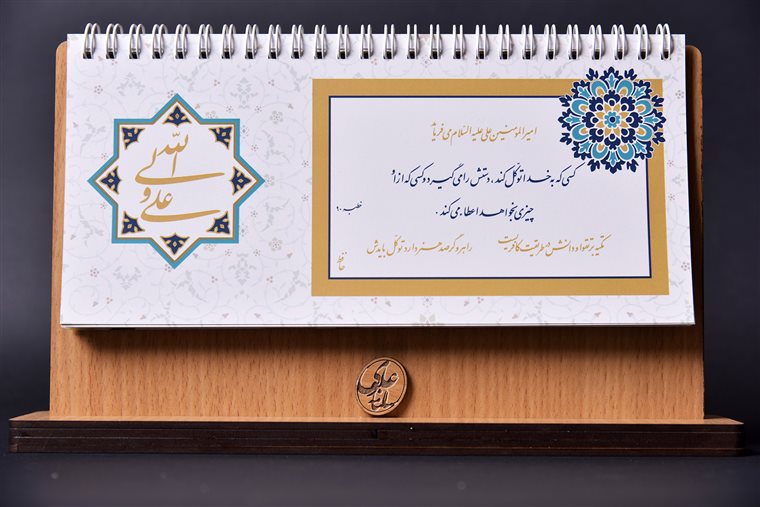 امیرالمؤمنین علی علیه السلام می فرماید
کسی که به خدا توکل کند، دستش را می گیرد و کسی که از او
چیزی بخواهد اعطا می کند.
خطبه ۹۰
تکیه بر تقوا و دانش در طریقت کافریست
راهرو گر صد هنر دارد توکل بایدش
حافظ
الله
علی